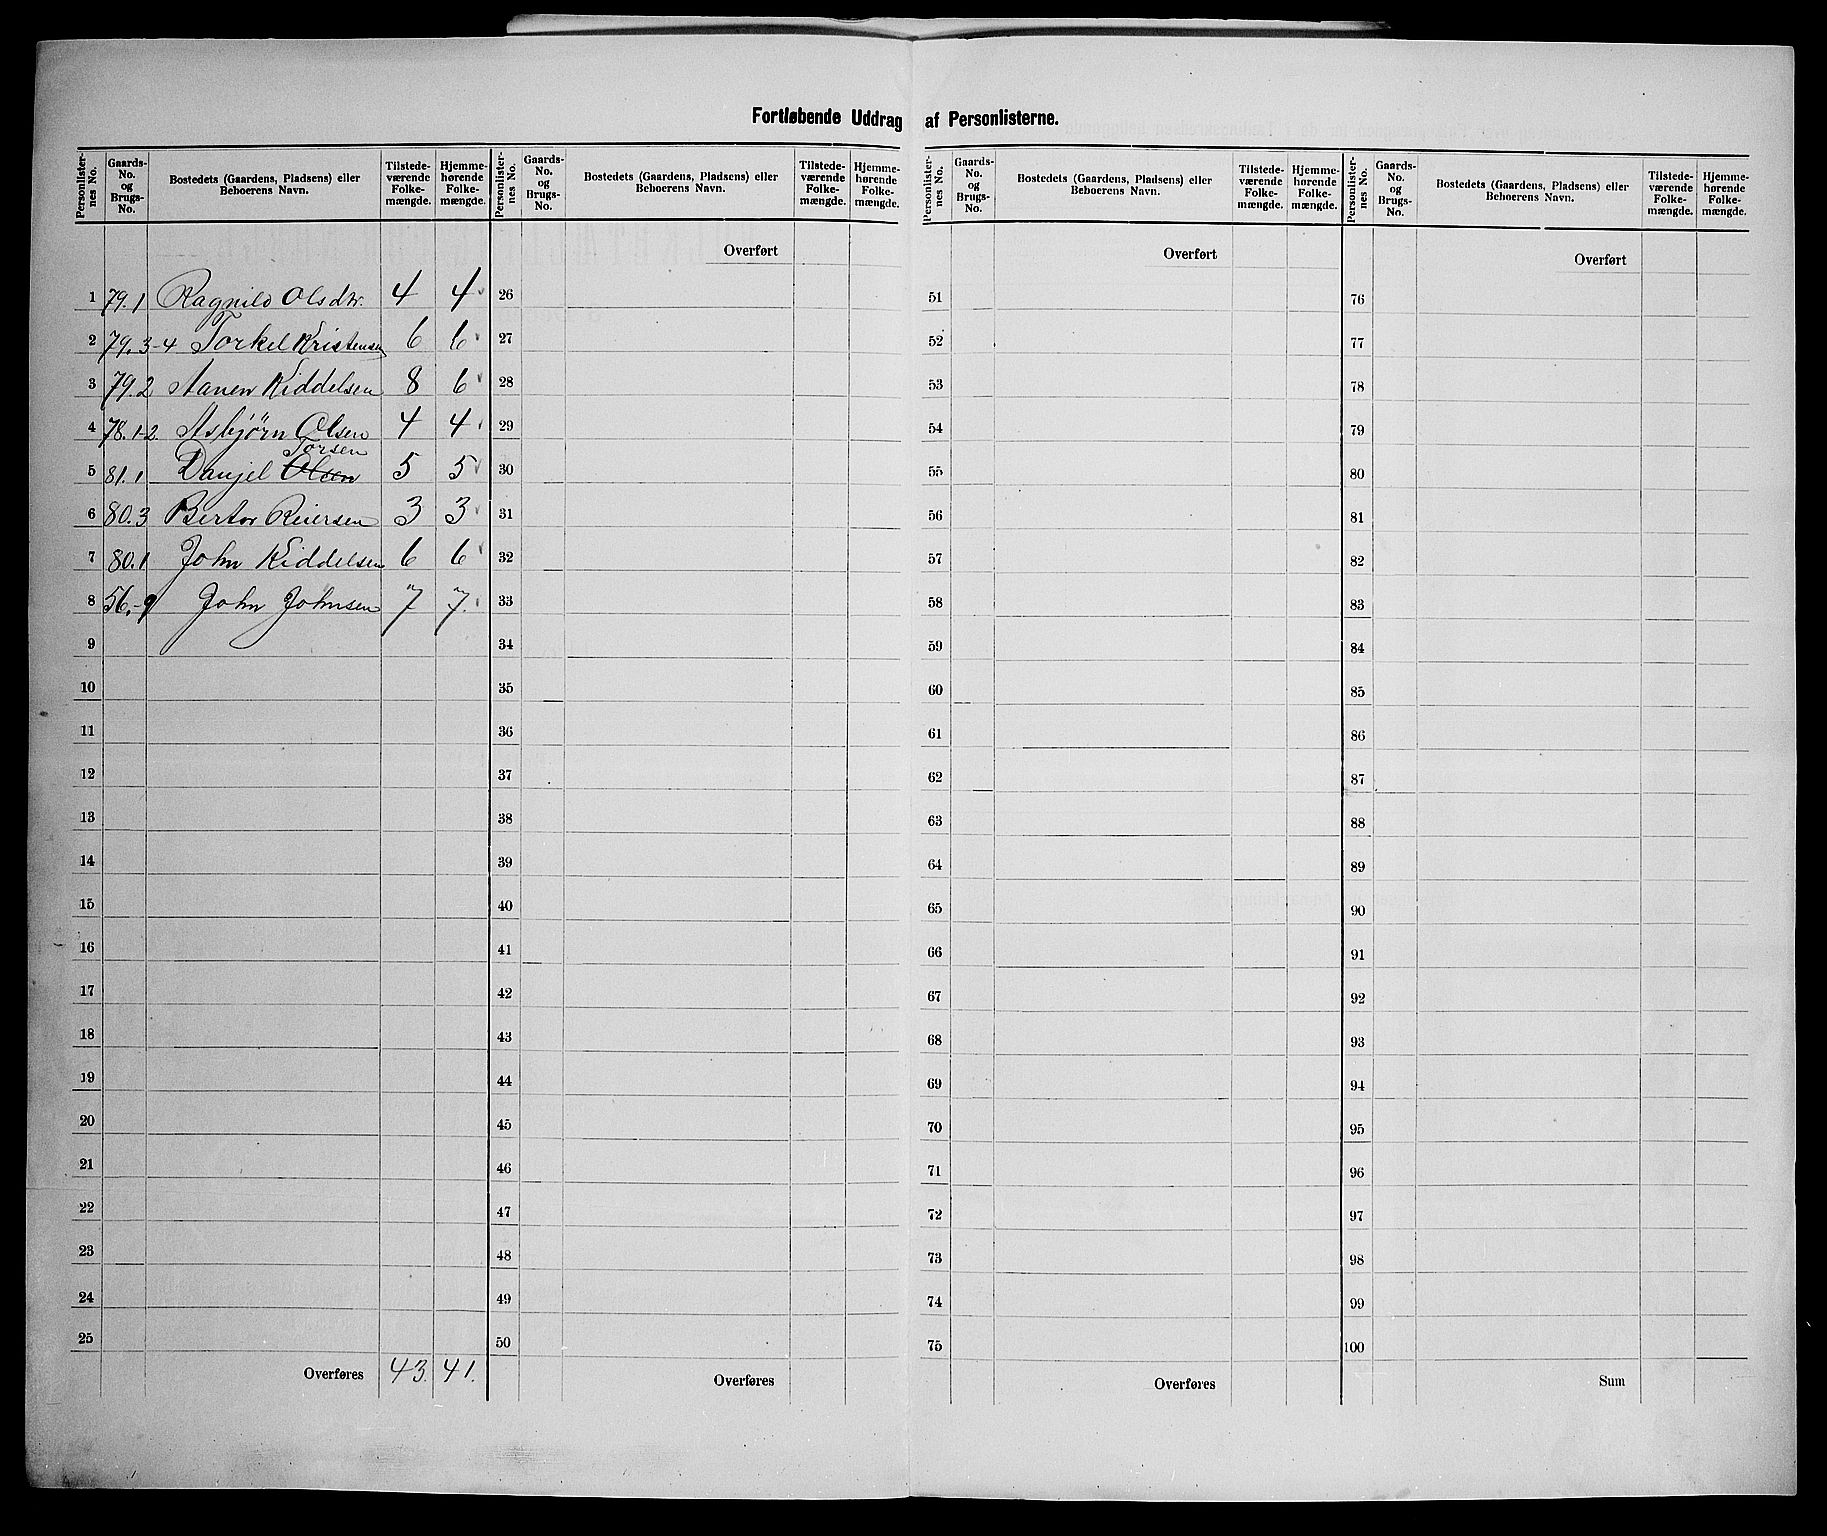 Fortløbende Uddrag af Personlisterne.
Personlister-nes No. Gaards-No. og Brugs-No. Bostedets (Gaardens, Pladsens) eller Beboerens Navn. Tilstede-værende Folke-mængde. Hjemme-hørende Folke-mængde.
1 79.1 Ragnild Olsdtr. 4 4
2 79.3-4 Torkel Kristensen 6 6
3 79.2 Aanen Kiddelsen 8 6
4 78.1-2. Asbjørn Olsen 4 4
Torsen
5 81.1 Danjel Olsen 5 5
6 80.3 Bertor Reiersen 3 3
7 80.1 John Kiddelsen 6 6
8 56.-9 John Johnsen 7 7.
9
10
11
12
13
14
15
16
17
18
19
20
21
22
23
24
25
Overføres 43. 41.
Personlister-nes No. Gaards-No. og Brugs-No. Bostedets (Gaardens, Pladsens) eller Beboerens Navn. Tilstede-værende Folke-mængde. Hjemme-hørende Folke-mængde.
Overført
26
27
28
29
30
31
32
33
34
35
36
37
38
39
40
41
42
43
44
45
46
47
48
49
50
Overføres
Personlister-nes No. Gaards-No. og Brugs-No. Bostedets (Gaardens, Pladsens) eller Beboerens Navn. Tilstede-værende Folke-mængde. Hjemme-hørende Folke-mængde.
Overført
51
52
53
54
55
56
57
58
59
60
61
62
63
64
65
66
67
68
69
70
71
72
73
74
75
Overføres
Personlister-nes No. Gaards-No. og Brugs-No. Bostedets (Gaardens, Pladsens) eller Beboerens Navn. Tilstede-værende Folke-mængde. Hjemme-hørende Folke-mængde.
Overført
76
77
78
79
80
81
82
83
84
85
86
87
88
89
90
91
92
93
94
95
96
97
98
99
100
Sum